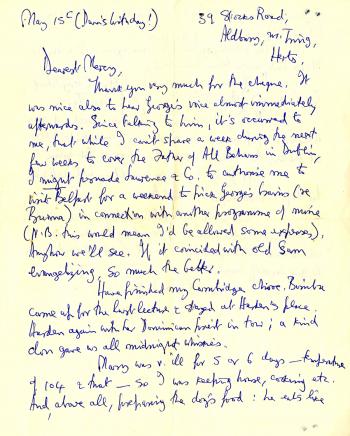 May 15th (Dawn's birthday!)
39 Stocks Road,
Aldbury, nr. Tring,
Herts.
Dearest Mercy,
Thank you very much for the cheque. It
was nice also to hear George's voice almost immediately
afterwards. Since talking to him, it's occurred to
me, that while I can't spare a week during the next
few weeks to cover the Father of All Behans in Dublin,
I might persuade Lawrence & Co. to authorise me to
visit Belfast for a weekend to pick George's brains (re
) in connection with another programme of mine
(N.B. this would mean I'd be allowed some expenses).
Anyhow we'll see. If it coincided with old Sam
evangelizing, so much the better.
Have finished my Cambridge chore.
came up for the last lecture & stayed at place.
again with her Dominican priest in tow; a kind
don gave us all midnight whiskies.
was v. ill for 5 or 6 days — temperature
of 104 & that — so I was keeping house, cooking etc.
And, above all, preparing the dog's food: he eats like